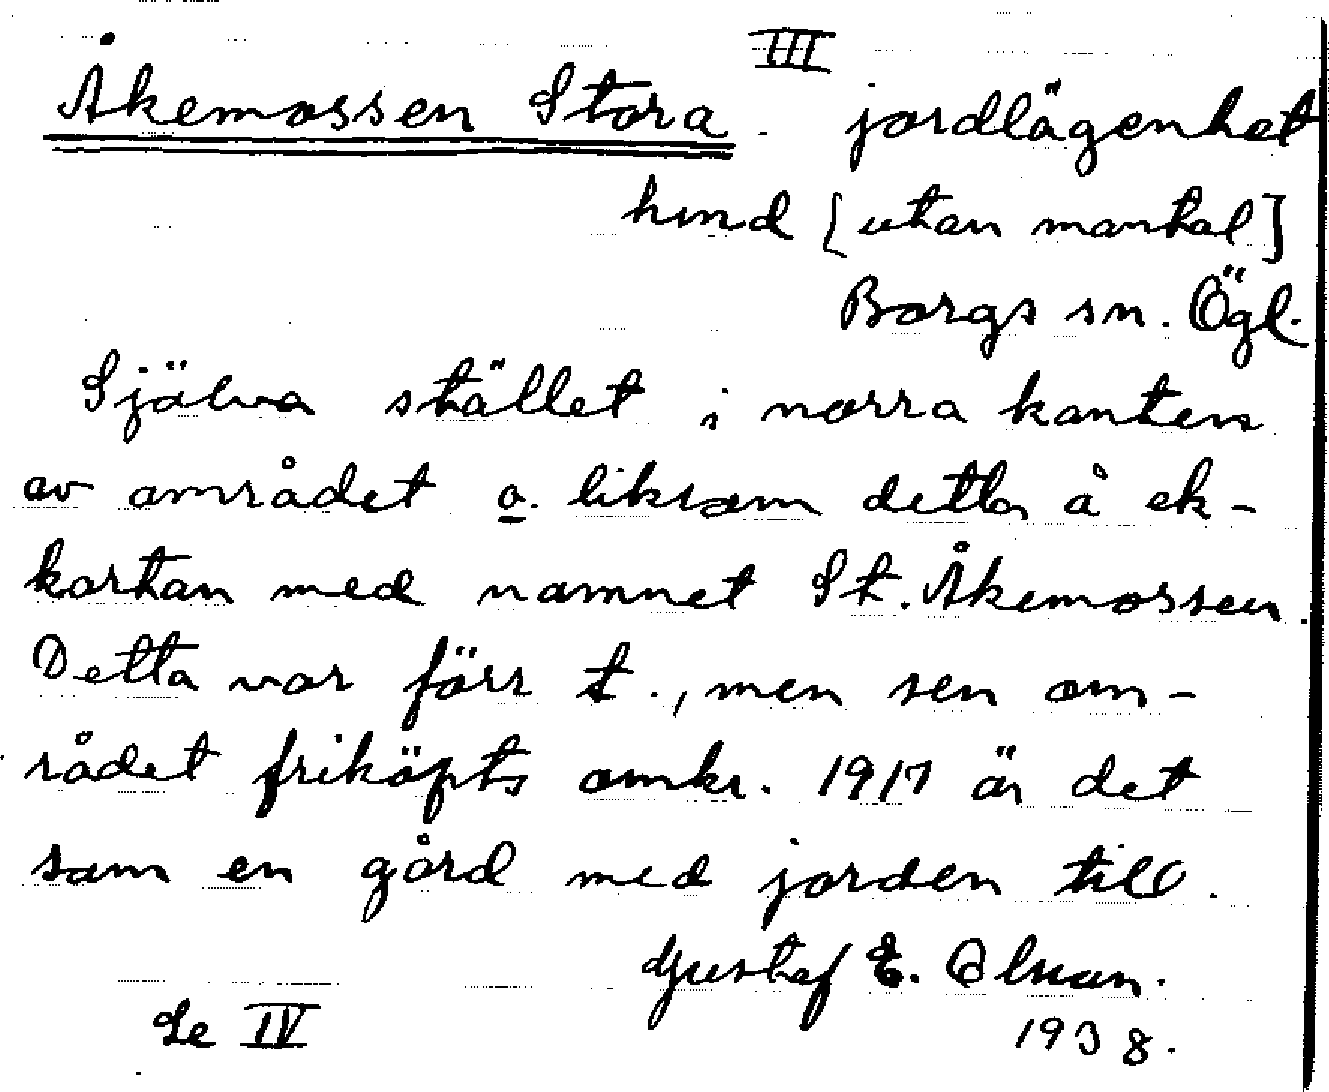 III
Åkemossen Stora. jordlägenhet
hmd [utan mantal]
Borgs sn. Ögl.
Själva stället i norra kanten
av området o. liksom detta å ek-
kartan med namnet St. Åkemossen.
Detta var förr t., men sen om-
rådet friköpts omkr. 1917 är det
som en gård med jorden till.
Gustaf E. Olson.
Se IV
1938.